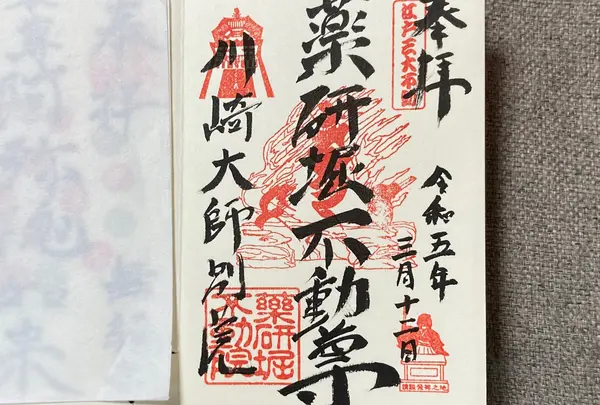 奉拝
江戸三大不動
令和五年
三月十二日
講談発祥之地
薬研堀不動尊
川崎大師別院
薬研堀
不動院